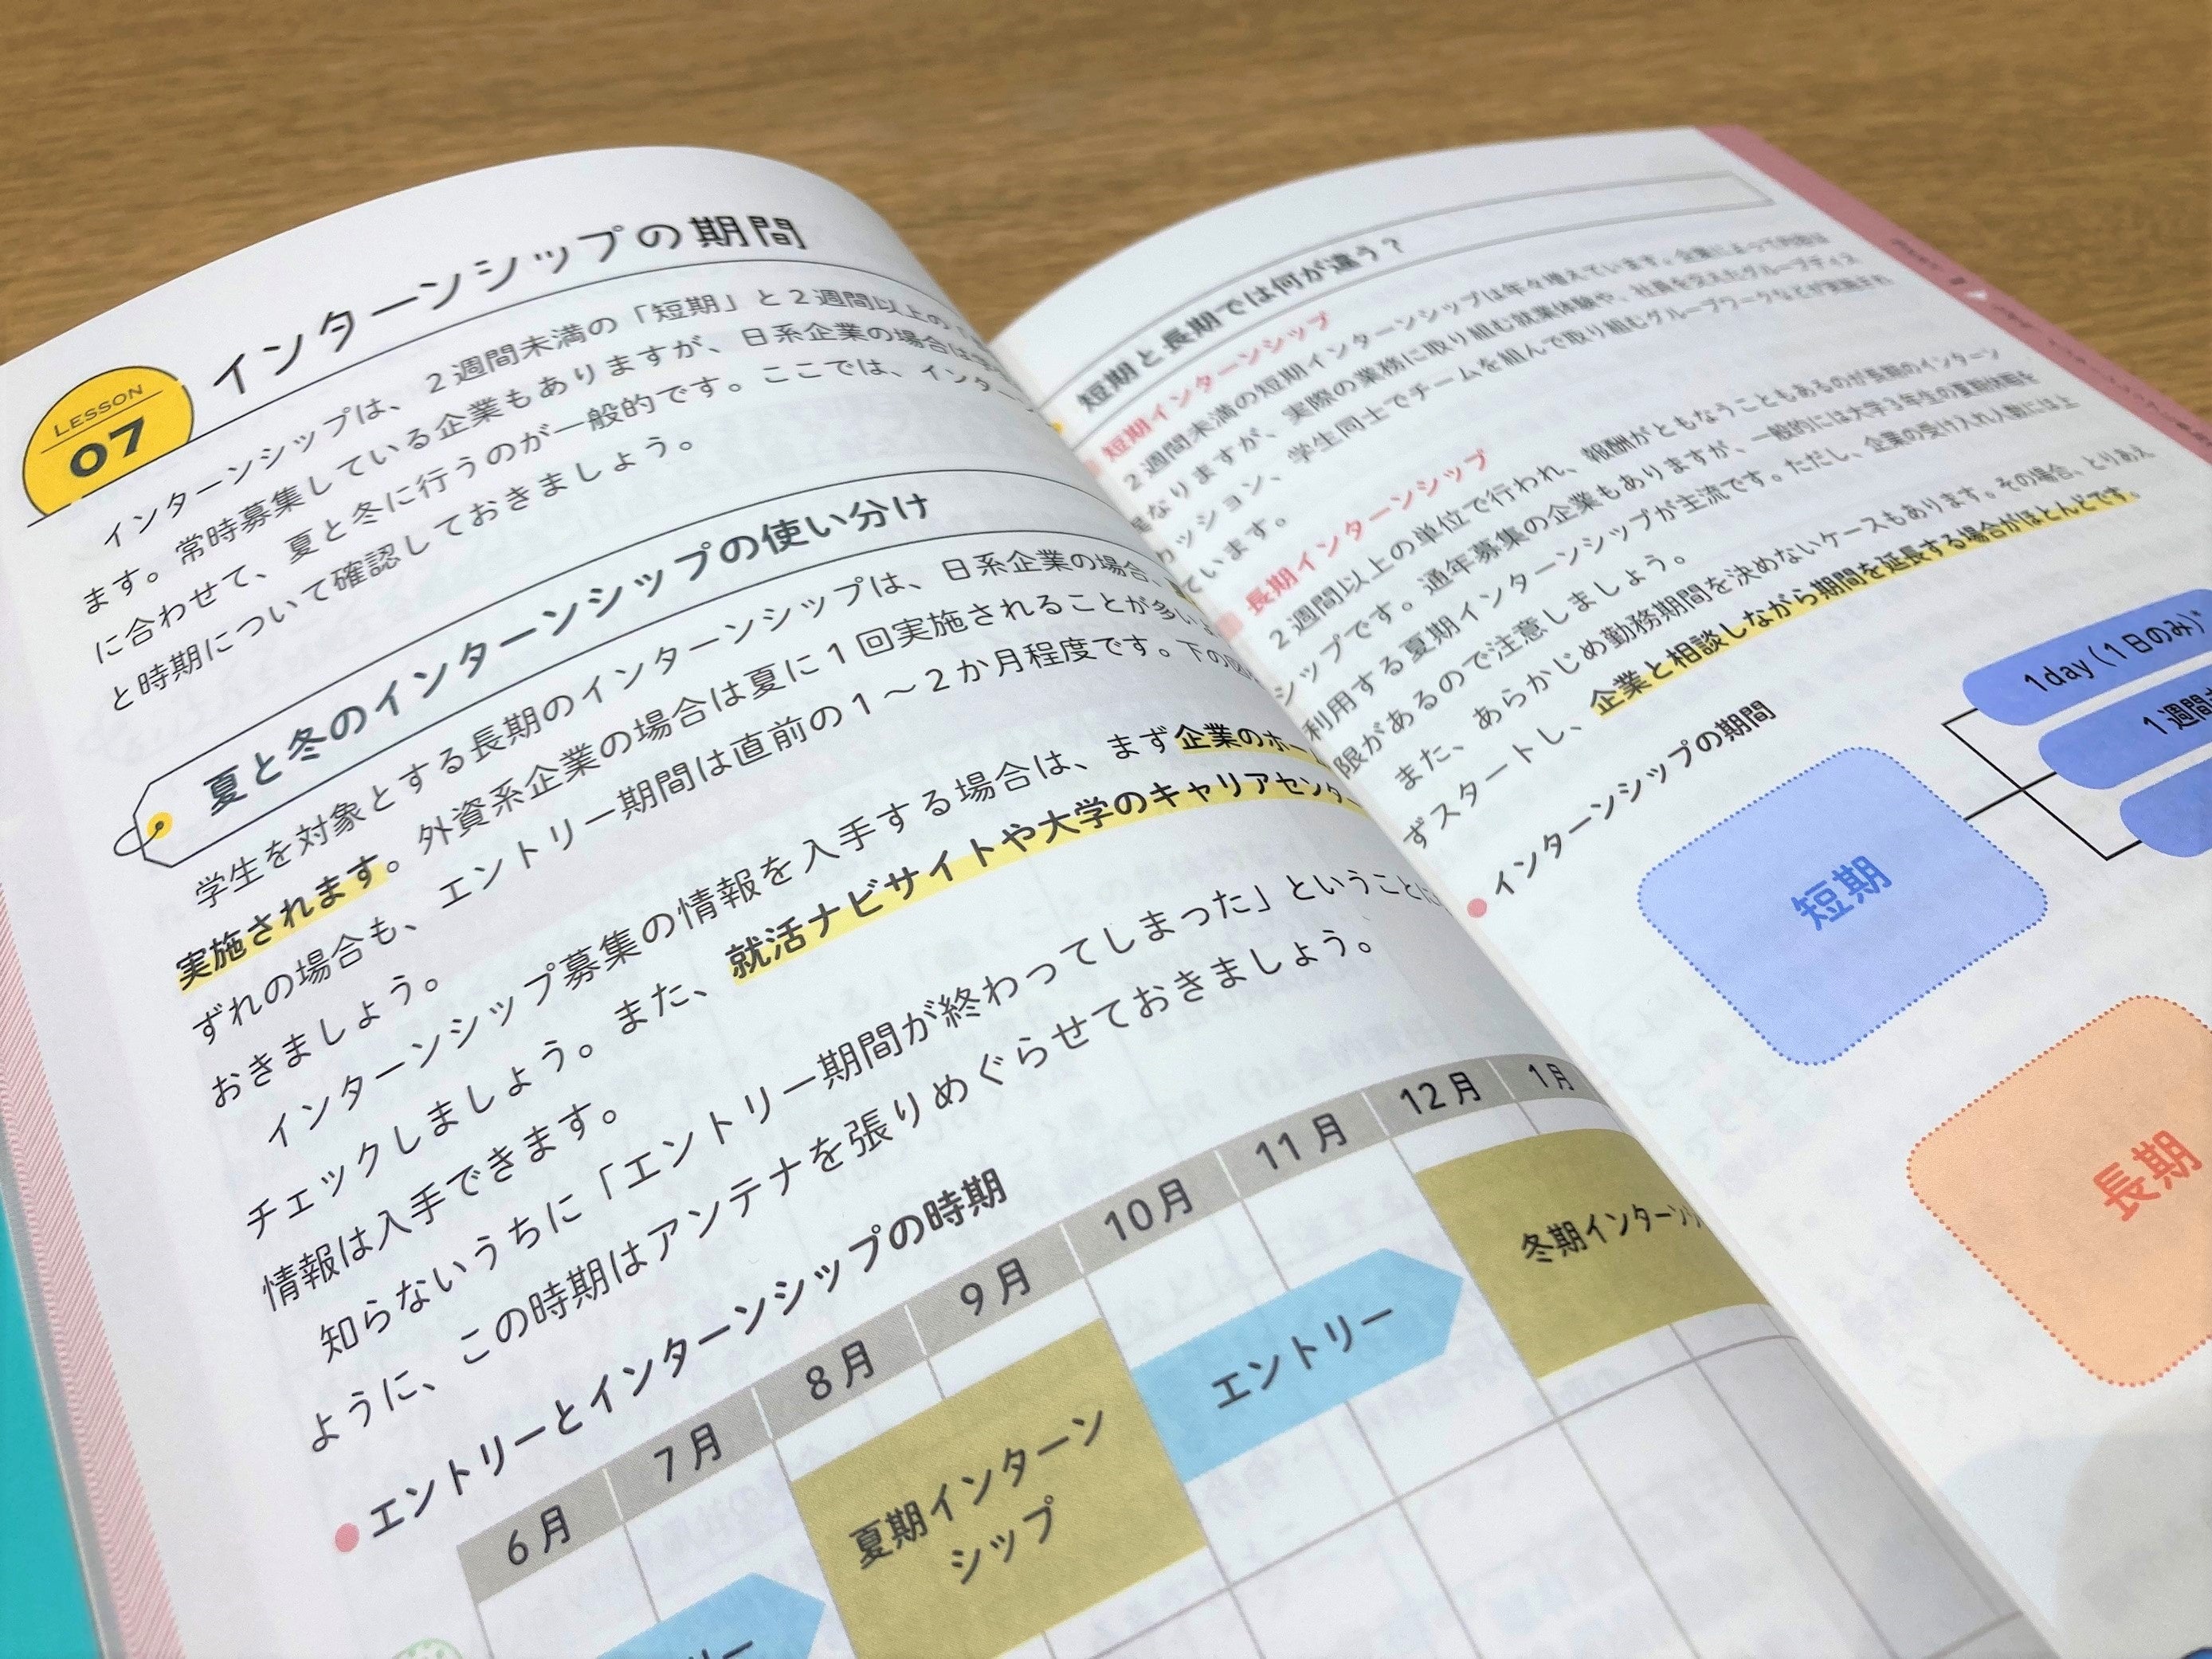 LESSON
07
インターンシップの期間
インターンシップは、2週間未満の「短期」と2週間以上の
ます。常時募集している企業もありますが、日系企業の場合は
に合わせて、夏と冬に行うのが一般的です。ここでは、インター
と時期について確認しておきましょう。
夏と冬のインターンシップの使い分け
学生を対象とする長期のインターンシップは、日系企業の場合、
実施されます。外資系企業の場合は夏に1回実施されることが多い
ずれの場合も、エントリー期間は直前の1～2か月程度です。下の
おきましょう。
インターンシップ募集の情報を入手する場合は、まず企業のホー
チェックしましょう。また、就活ナビサイトや大学のキャリアセンター
情報は入手できます。
知らないうちに「エントリー期間が終わってしまった」ということ
ように、この時期はアンテナを張りめぐらせておきましょう。
エントリーとインターンシップの時期
6月 7月 8月 9月 10月 11月 12月 1月
夏期インターン
シップ
エントリー
冬期インターン
リー
短期と長期では何が違う？
短期インターンシップ
2週間未満の短期インターンシップは年々増えています。企業によって内容は
なりますが、実際の業務に取り組む就業体験や、社員を交えたグループディス
カッション、学生同士でチームを組んで取り組むグループワークなどが実施され
ています。
長期インターンシップ
2週間以上の単位で行われ、報酬がともなうこともあるのが長期のインターン
シップです。通年募集の企業もありますが、一般的には大学3年生の夏期休暇を
利用する夏期インターンシップが主流です。ただし、企業の受け入れ人数には上
限があるので注意しましょう。
また、あらかじめ勤務期間を決めないケースもあります。その場合、とりあえ
ずスタートし、企業と相談しながら期間を延長する場合がほとんどです。
インターンシップの期間
短期
1day（1日のみ）
1週間
長期